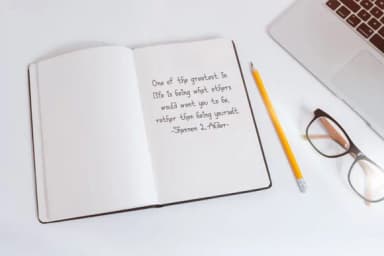 One of the greatest in
life is being what others
would want you to be,
rather than being yourself.
-Shannon L. Alder-